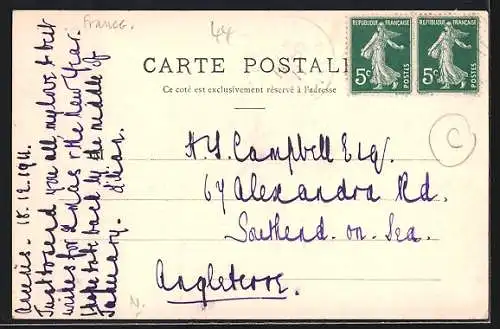 France.
44
RÉPUBLIQUE FRANÇAISE
5c
POSTES
RÉPUBLIQUE FRANÇAISE
5c
POSTES
CARTE POSTALE
Ce coté est exclusivement réservé à l'adresse
C
H. S. Campbell Esq.
67 Alexandra Rd.
Southend-on-Sea.
Angleterre.
18.12.1911.
Just to send you all my love & best
wishes for Xmas & the New Year.
Hope to be back by the middle of
January.
N.